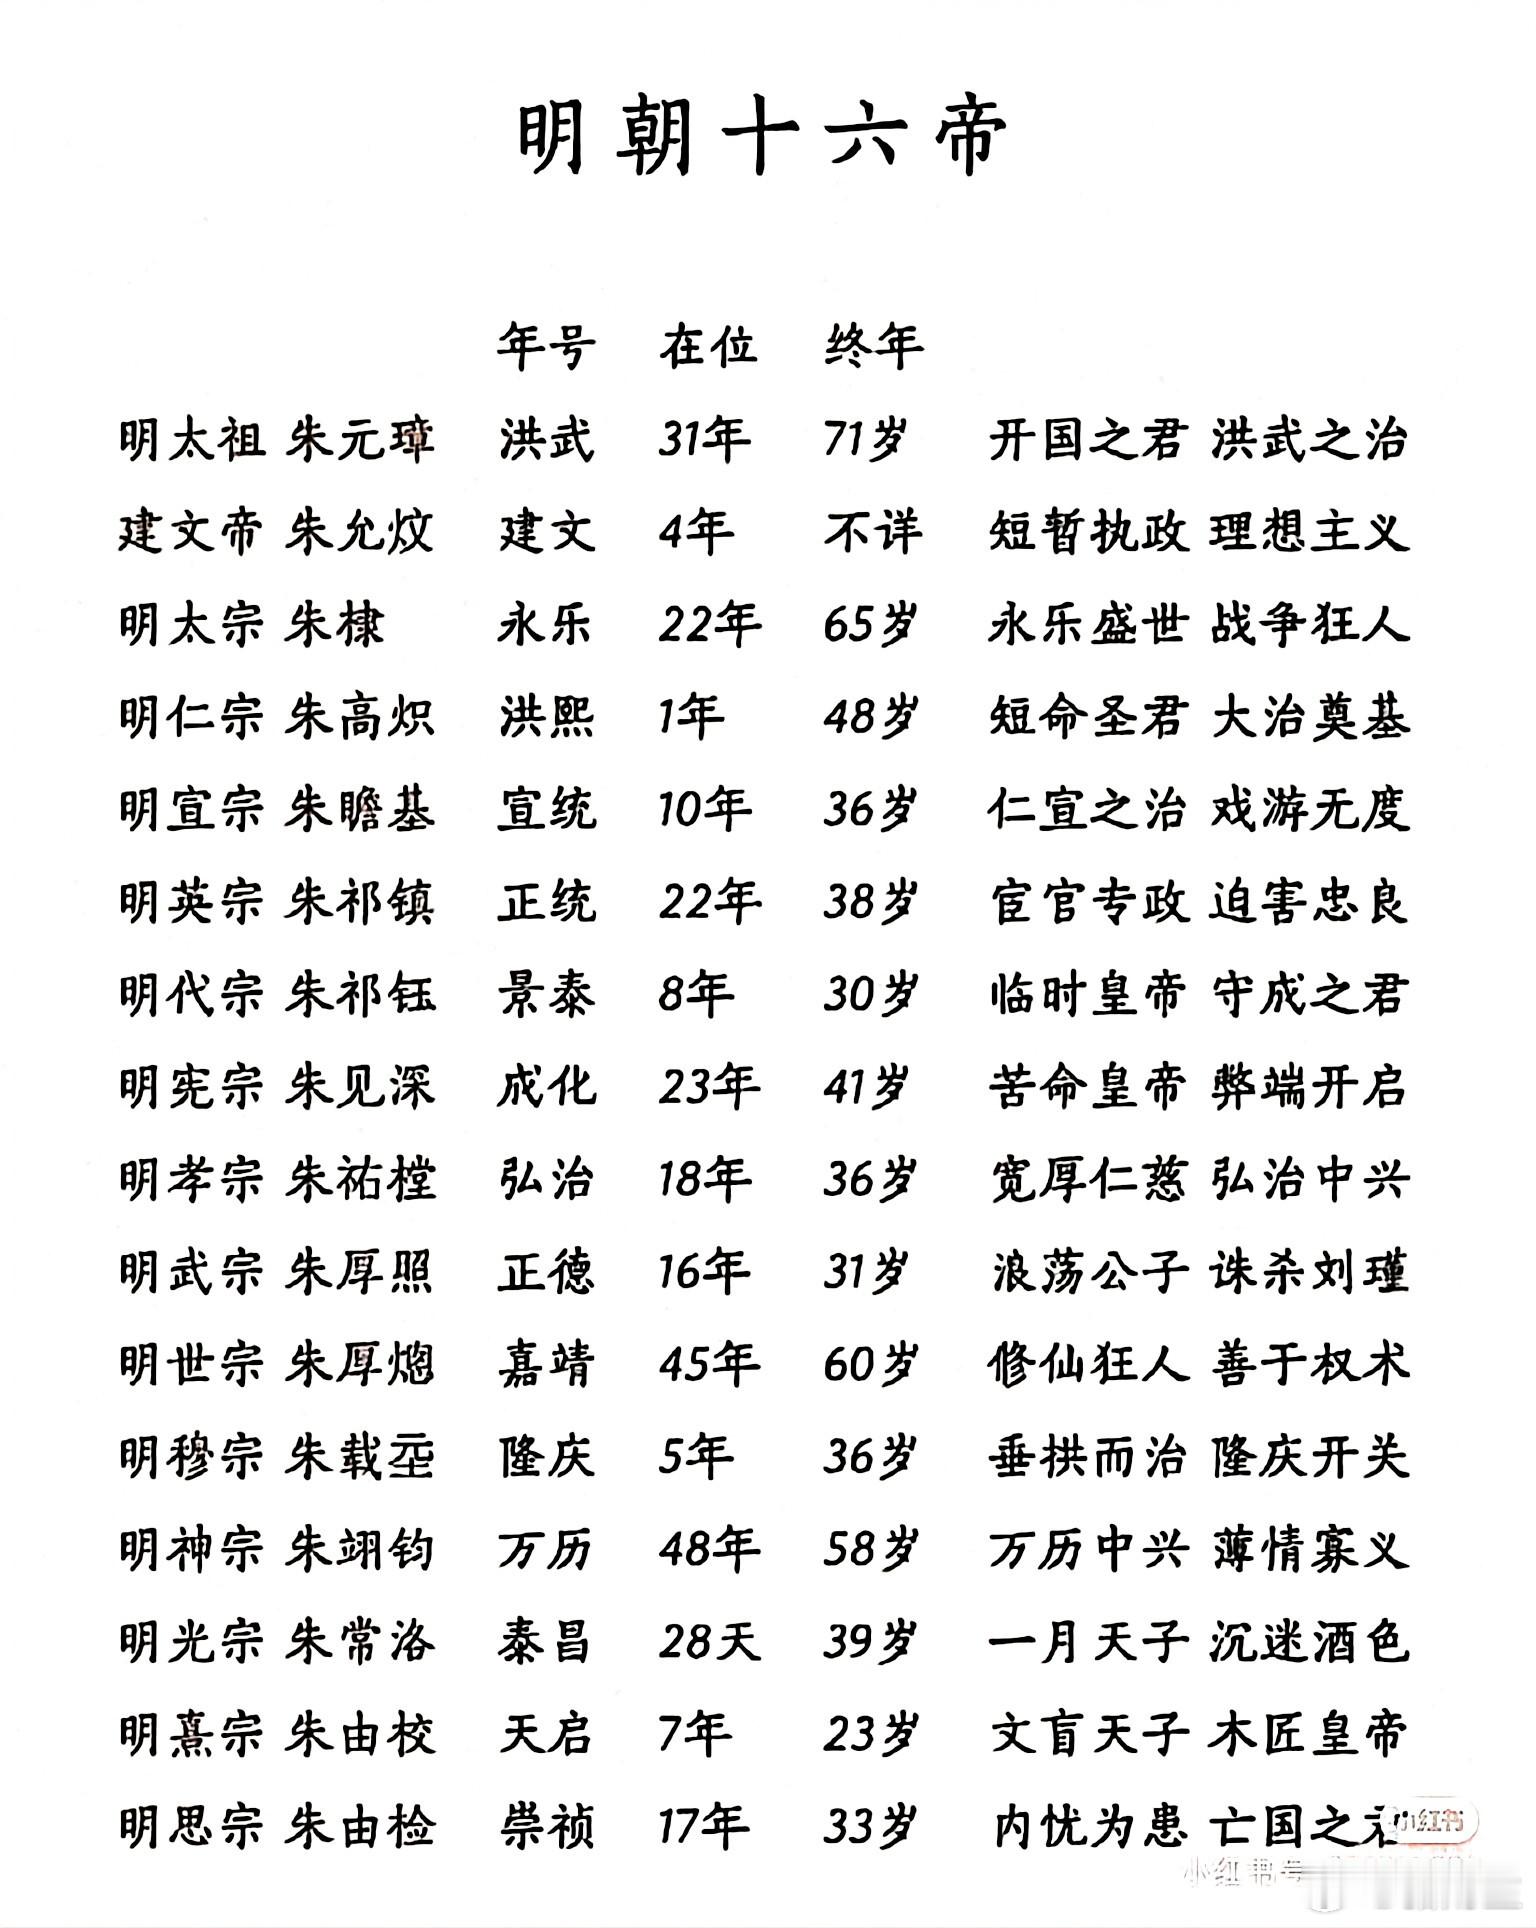 明朝十六帝
年号 在位 终年
明太祖 朱元璋 洪武 31年 71岁 开国之君 洪武之治
建文帝 朱允炆 建文 4年 不详 短暂执政 理想主义
明太宗 朱棣 永乐 22年 65岁 永乐盛世 战争狂人
明仁宗 朱高炽 洪熙 1年 48岁 短命圣君 大治奠基
明宣宗 朱瞻基 宣统 10年 36岁 仁宣之治 戏游无度
明英宗 朱祁镇 正统 22年 38岁 宦官专政 迫害忠良
明代宗 朱祁钰 景泰 8年 30岁 临时皇帝 守成之君
明宪宗 朱见深 成化 23年 41岁 苦命皇帝 弊端开启
明孝宗 朱祐樘 弘治 18年 36岁 宽厚仁慈 弘治中兴
明武宗 朱厚照 正德 16年 31岁 浪荡公子 诛杀刘瑾
明世宗 朱厚熜 嘉靖 45年 60岁 修仙狂人 善于权术
明穆宗 朱载坖 隆庆 5年 36岁 垂拱而治 隆庆开关
明神宗 朱翊钧 万历 48年 58岁 万历中兴 薄情寡义
明光宗 朱常洛 泰昌 28天 39岁 一月天子 沉迷酒色
明熹宗 朱由校 天启 7年 23岁 文盲天子 木匠皇帝
明思宗 朱由检 崇祯 17年 33岁 内忧为患 亡国之君
小红书
小红书号